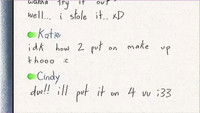 wanna try it out
well... i stole it.. xD
Katie
idk how 2 put on make up
khooo :c
Cindy
dur!! ill put it on 4 vu i33